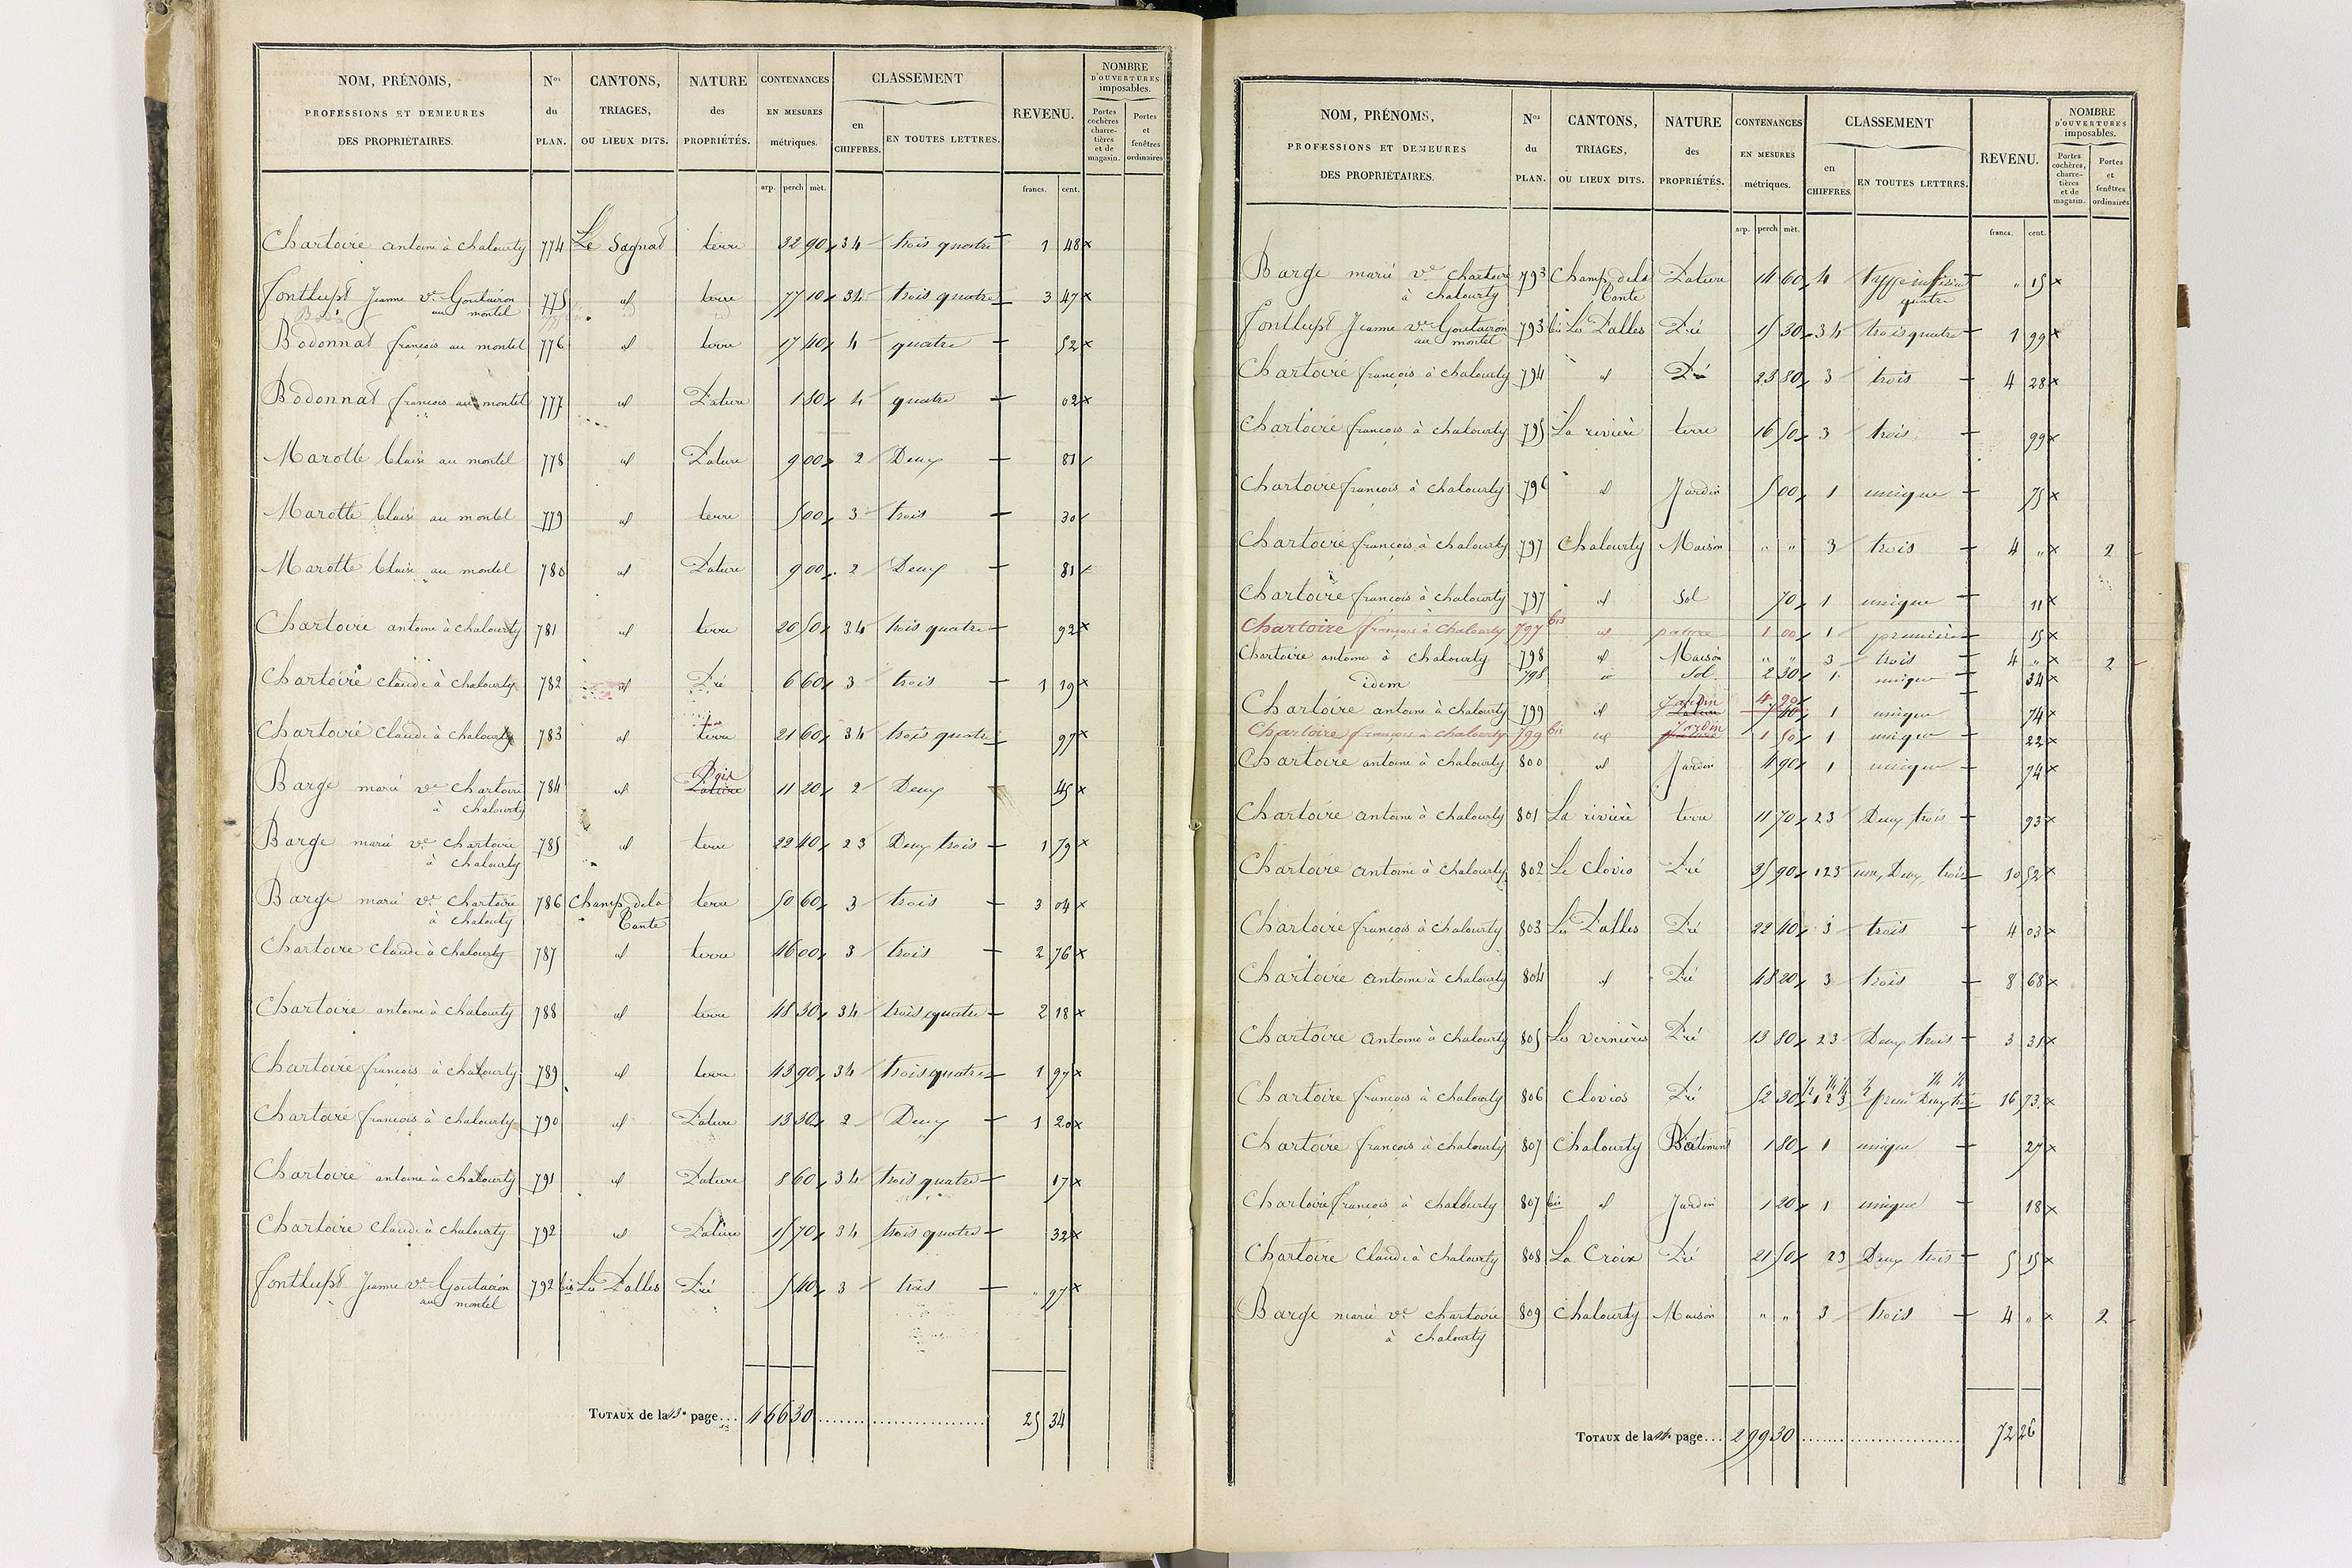 NOM, PRÉNOMS, PROFESSIONS ET DEMEURES DES PROPRIÉTAIRES. Nos du PLAN. CANTONS, TRIAGES, OU LIEUX DITS. NATURE des PROPRIÉTÉS. CONTENANCES EN MESURES métriques. CLASSEMENT en CHIFFRES. EN TOUTES LETTRES. REVENU. NOMBRE D'OUVERTURES imposables. Portes cochères charretières et de magasin. Portes et fenêtres ordinaires
arp. perch mèt. francs. cent.
Chartoire antoine à chalourty 774 Le Sagnat terre 32 90 34 trois quatre 1 48
Fontlupt Jeanne ve Goutairon 775 id terre 77 10 34 trois quatre 3 47
au montel
Bodonnat françois au montel 776 id terre 17 40 4 quatre 52
Bodonnat françois au montel 777 id Pature 1 30 4 quatre 02
Marotte blaise au montel 778 id Pature 9 00 2 Deux 81
Marotte blaise au montel 779 id terre 5 00 3 trois 30
Marotte blaise au montel 780 id Pature 9 00 2 Deux 81
Chartoire antoine à chalourty 781 id terre 20 50 34 trois quatre 92
Chartoire claude à chalourty 782 id Pré 6 60 3 trois 1 19
Chartoire Claude à chalourty 783 id terre 21 60 34 trois quatre 97
Bois
Barge marie ve chartoire 784 id Pature 11 20 2 Deux 45
à chalourty
Barge marie ve chartoire 785 id terre 22 40 23 Deux trois 1 79
à chalourty
Barge marie ve chartoire 786 Champ de la terre 50 60 3 trois 3 04
à chalourty Conte
Chartoire claude à chalourty 787 id terre 46 00 3 trois 2 76
Chartoire antoine à chalourty 788 id terre 48 30 34 trois quatre 2 18
Chartoire françois à chalourty 789 id terre 43 90 34 trois quatre 1 97
Chartoire françois à chalourty 790 id Pature 13 30 2 Deux 1 20
Chartoire antoine à chalourty 791 id Pature 8 60 34 trois quatre 17
Chartoire Claude à chalourty 792 id Pature 15 70 34 trois quatre 32
Fontlupt Jeanne ve Goutairon 792 bis Les Palles Pré 5 40 3 trois " 97
au montel
TOTAUX de la 13e page... 4 66 30 25 34
NOM, PRÉNOMS, PROFESSIONS ET DEMEURES DES PROPRIÉTAIRES. Nos du PLAN. CANTONS, TRIAGES, OU LIEUX DITS. NATURE des PROPRIÉTÉS. CONTENANCES EN MESURES métriques. CLASSEMENT en CHIFFRES. EN TOUTES LETTRES. REVENU. NOMBRE D'OUVERTURES imposables. Portes cochères, charretières et de magasin. Portes et fenêtres ordinaires
arp. perch mèt. francs. cent.
Barge marie ve chartoire 793 Champ de la Pature 14 60 4 " 15
à chalourty Conte quatre
Fontlupt Jeanne ve Goutairon 793 bis Les Palles Pré 15 30 34 trois quatre 1 99
au montel
Chartoire françois à chalourty 794 id Pré 23 80 3 trois 4 28
Chartoire françois à chalourty 795 La rivière terre 16 50 3 trois 99
Chartoire françois à chalourty 796 id Jardin 5 00 1 unique 75
Chartoire françois à chalourty 797 Chalourty Maison " " 3 trois 4 " 2
Chartoire françois à chalourty 797 id Sol 70 1 unique 11
Chartoire françois à chalourty 797 bis id pature 1 00 1 première 15
Chartoire antoine à chalourty 798 id Maison " " 3 trois 4 " 2
idem 798 id Sol 2 30 1 unique 34
Jardin 4 90
Chartoire antoine à chalourty 799 id Pature 7 40 1 unique 74
Jardin
Chartoire françois à chalourty 799 bis id pature 1 50 1 unique 22
Chartoire antoine à chalourty 800 id Jardin 4 90 1 unique 74
Chartoire antoine à chalourty 801 La rivière terre 11 70 23 Deux trois 93
Chartoire antoine à chalourty 802 Le Clovio Pré 35 90 123 un, Deux, trois 10 52
Chartoire françois à chalourty 803 Les Palles Pré 22 40 3 trois 4 03
Chartoire antoine à chalourty 804 id Pré 48 20 3 trois 8 68
Chartoire antoine à chalourty 805 Les vernières Pré 13 80 23 Deux trois 3 31
½ ¼ ¼ ½ ¼ ¼
Chartoire françois à chalourty 806 Clovios Pré 52 30 1 2 3 16 73
Chartoire françois à chalourty 807 Chalourty Bâtiment 1 80 1 unique 27
Chartoire françois à chalourty 807 bis id Jardin 1 20 1 unique 18
Chartoire Claude à chalourty 808 La Croix Pré 21 50 23 Deux trois 5 15
Barge marie ve chartoire 809 Chalourty Maison " " 3 trois 4 " 2
à chalourty
TOTAUX de la 14e page... 2 99 30 72 26